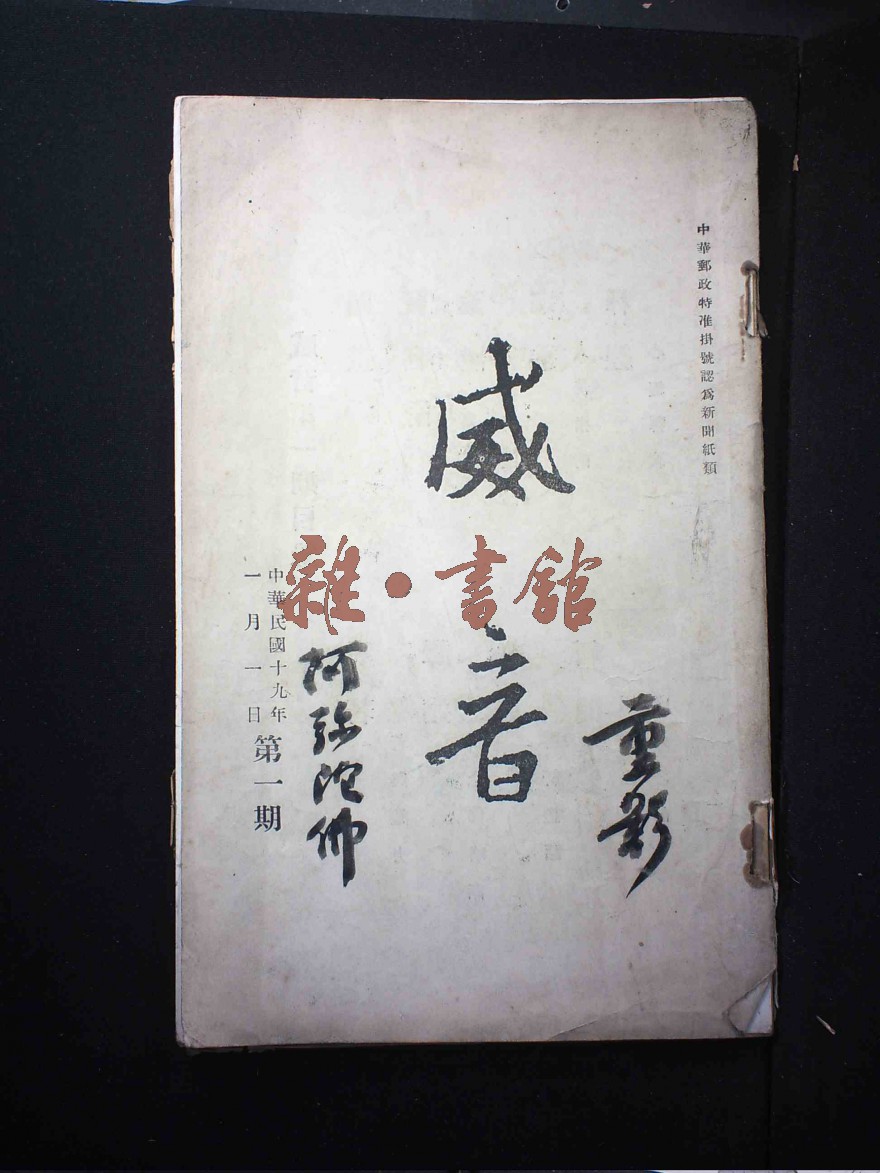 中華郵政特准掛號認爲新聞紙類
威音
重影
雜·書館
阿弥陀佛
中華民國十九年
一月一日
第一期